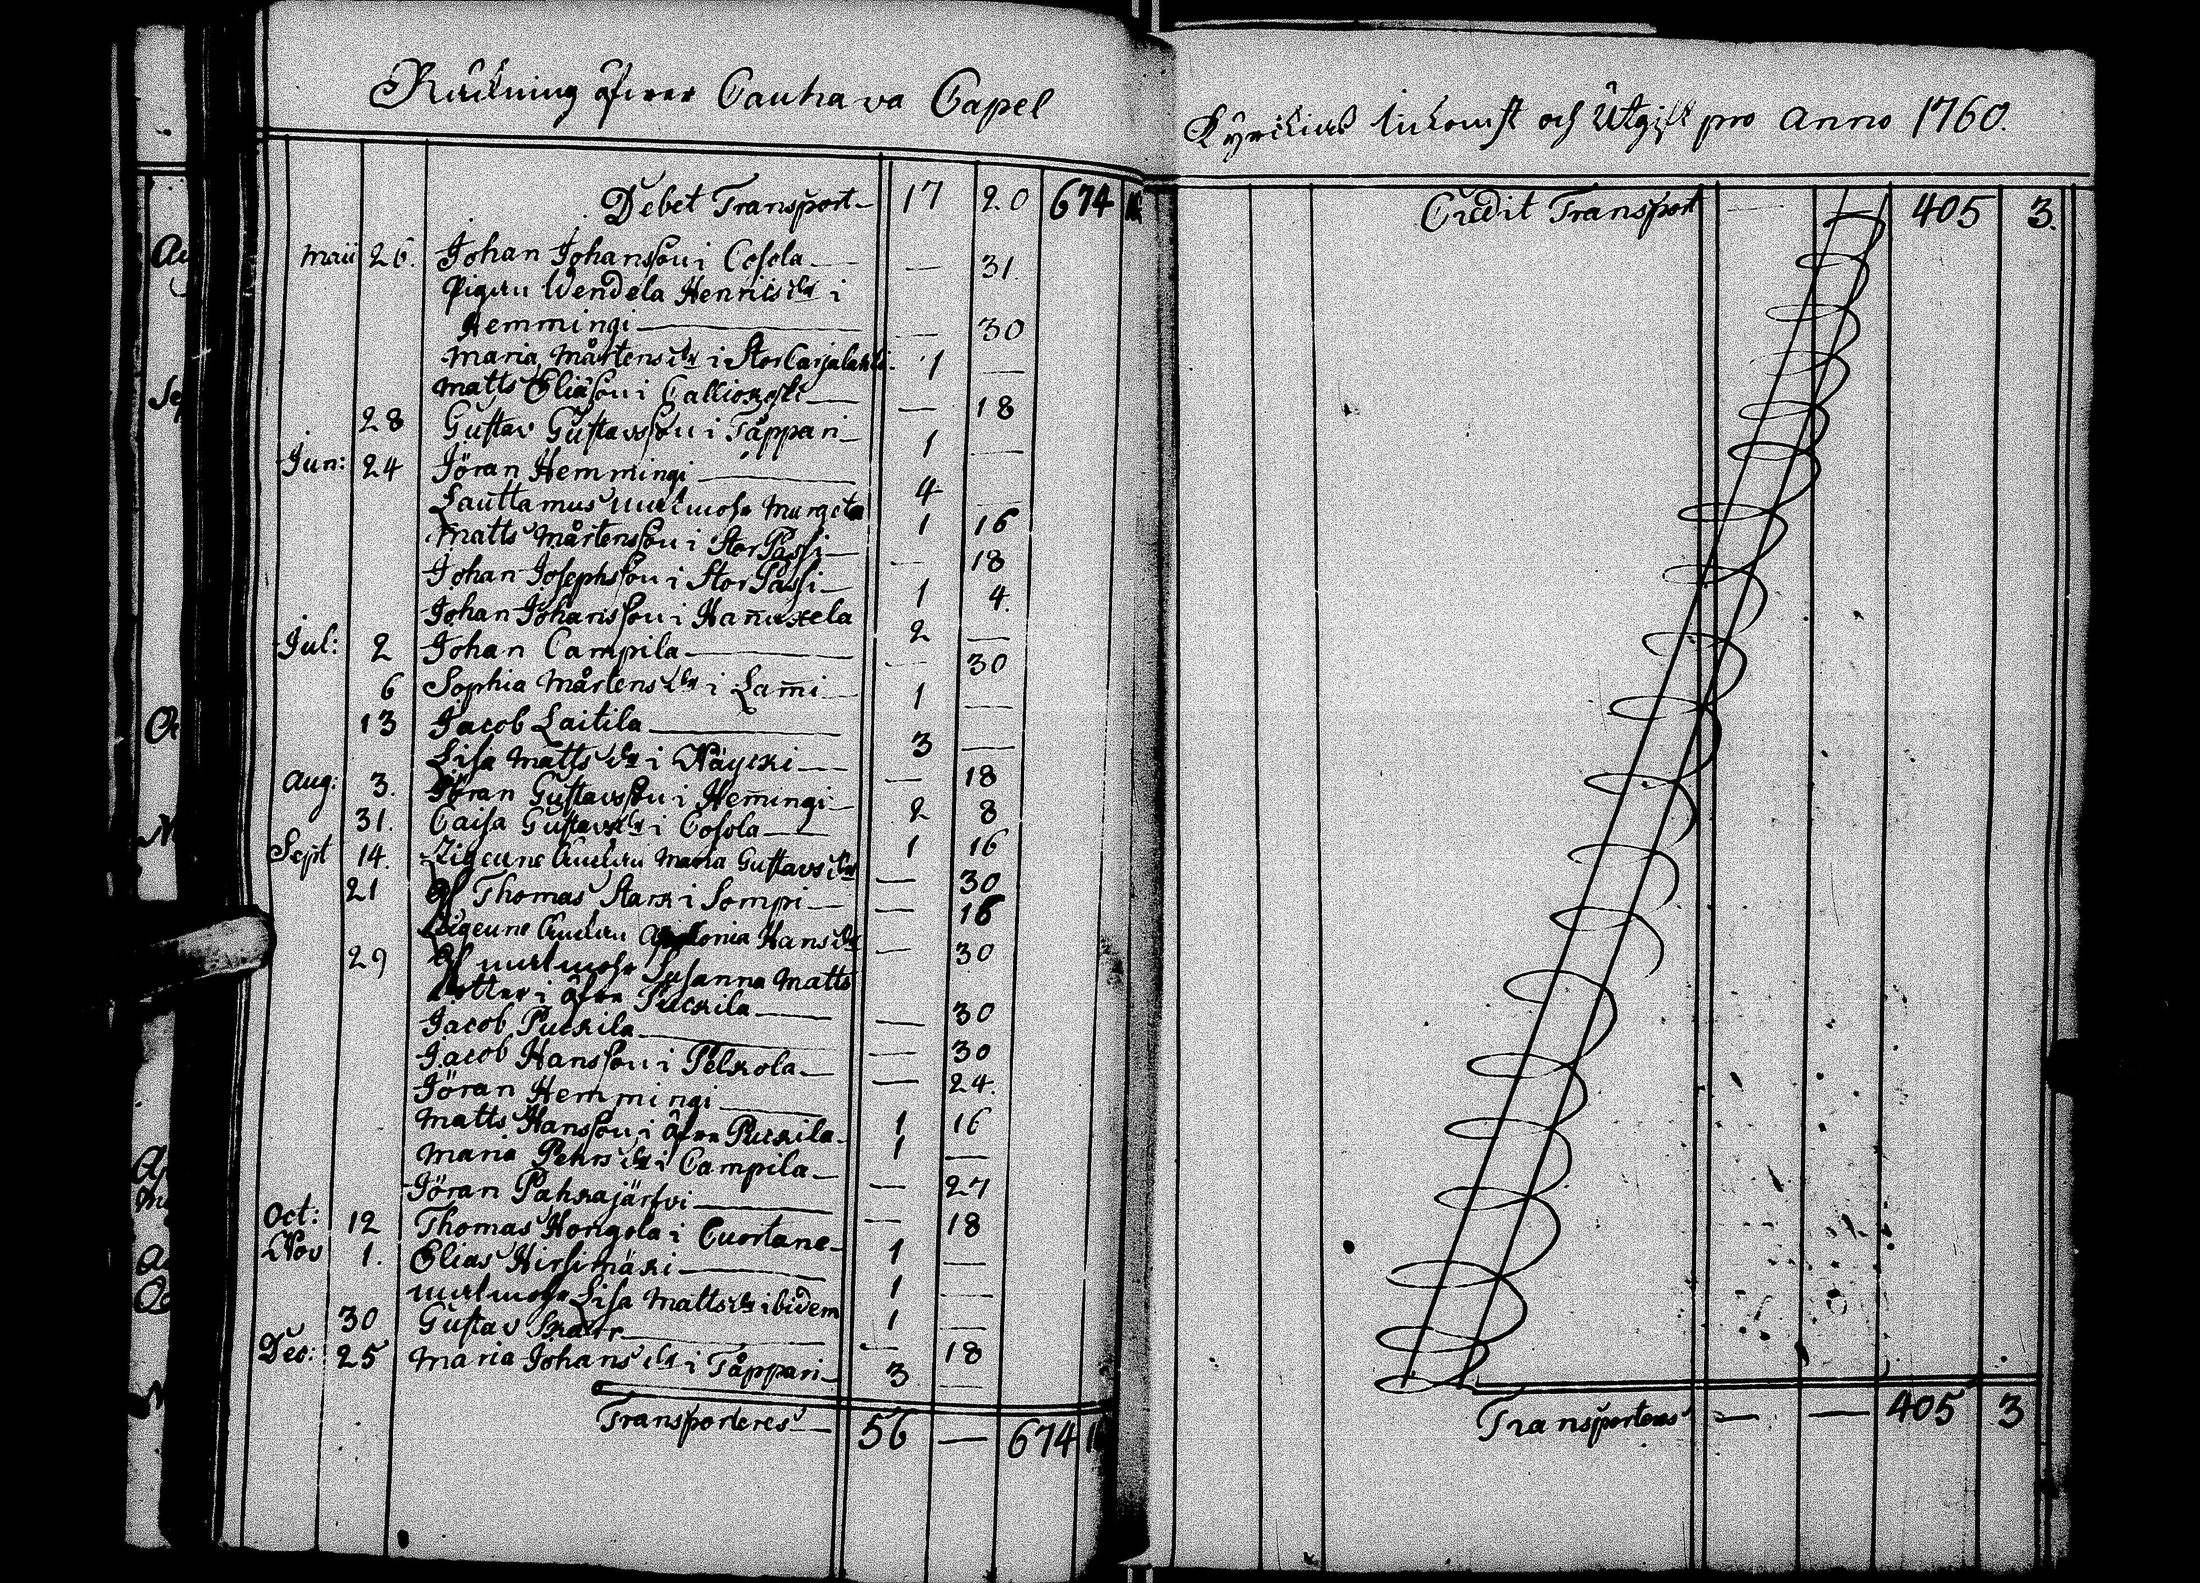 Räkning öfwer Cauhava Capel
Debet Transport 17 20 674 16
Maii 26. Johan Johansson i Cosola — 31.
Pigan Wendela Henricsdr i
Hemmingi — 30
Maria Mårtensdr i StorCarjalahti 1 —
Matts Eliasson i Calliokoski — 18
28 Gustav Gustavsson i Tåppari 1 —
Jun: 24 Jöran Hemmingi 4 —
Lauttamus Margeta 1 16
Matts Mårtensson i StorPassi — 18
Johan Josephsson i StorPassi 1 4.
Johan Johansson i Hanukela 2 —
Jul: 2 Johan Campila — 30
6 Sophia Mårtensdr i Lam̅i 1 —
13 Jacob Laitila 3 —
Lisa Mattsdr i Näycki — 18
Aug: 3. Jöran Gustavsson i Hem̅ingi 2 8
31. Caisa Gustavsdr i Cosola 1 16
Sept 14. Zigeune Änckan Maria Gustavsdr — 30
21 Gl Thomas Stark i Sompi — 16
Zigeune Änckan Apolonia Hansdr — 30
29 Gl Susanna Matts
dotter i Öfre Puckila — 30
Jacob Puckila — 30
Jacob Hansson i Pelkola — 24.
Jöran Hemmingi 1 16
Matts Hansson i Öfre Puckila 1 —
Maria Pehrsdr i Campila — 27
Jöran Pahkajärfvi — 18
Oct: 12 Thomas Hongola i Cuortane 1 —
Nov 1. Elias Hirsimäki 1 —
Lisa Mattsdr ibidem 1 —
30 Gustav Skarr — 18
Dec: 25 Maria Johansdr i Tåppari 3 —
Transporteres 56 — 674 16
Kyrckians Inkomst och Utgift pro Anno 1760.
Credit Transport — — 405 3.
Transporteres — — 405 3